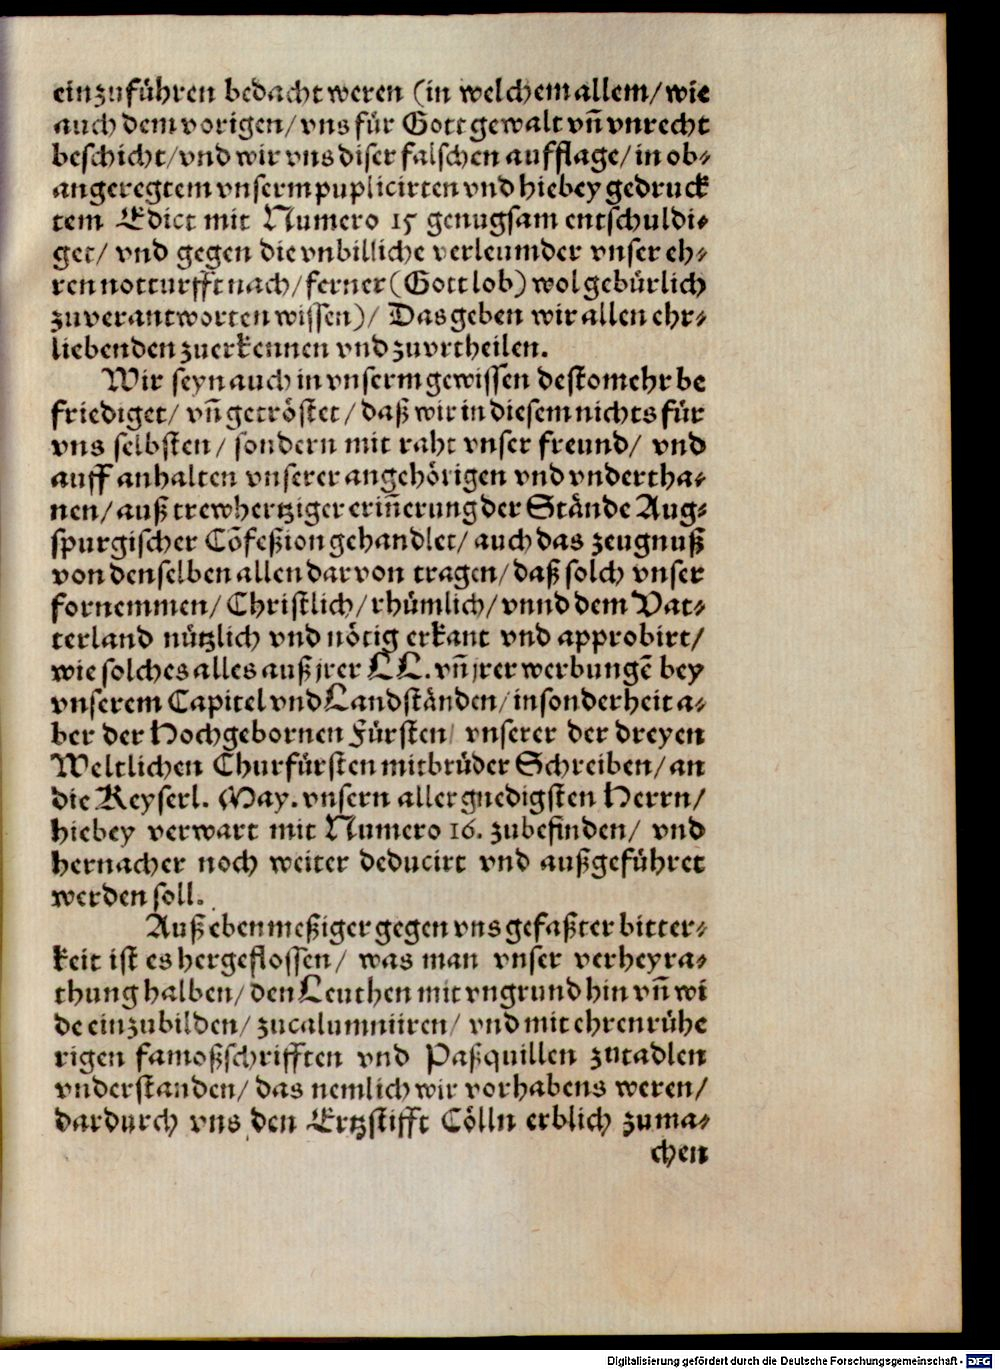 einzuführen bedacht weren (in welchem allem/ wie
auch dem vorigen/ vns für Gott gewalt vñ vnrecht
beschicht/ vnd wir vns diser falschen aufflage/ in ob-
angeregtem vnserm puplicirten vnd hiebey gedruck
tem Edict mit Numero 15 genugsam entschuldi-
get/ vnd gegen die vnbilliche verleumder vnser eh-
ren notturfft nach/ ferner (Gott lob) wol gebürlich
zuverantworten wissen)/ Das geben wir allen ehr-
liebenden zuerkennen vnd zuvrtheilen.
Wir seyn auch in vnserm gewissen desto mehr be
friediget/ vñ getröstet/ daß wir in diesem nichts für
vns selbsten/ sondern mit raht vnser freund/ vnd
auff anhalten vnserer angehörigen vnd vndertha-
nen/ auß trewhertziger eriñerung der Stände Aug-
spurgischer Cõfeßion gehandlet/ auch das zeugnuß
von denselben allen darvon tragen/ daß solch vnser
fornemmen/ Christlich/ rhümlich/ vnnd dem Vat-
terland nützlich vnd nötig erkant vnd approbirt/
wie solches alles auß jrer LL. vñ jrer werbungẽ bey
vnserem Capitel vnd Landständen/ insonderheit a-
ber der Hochgebornen Fürsten/ vnserer der dreyen
Weltlichen Churfürsten mitbrüder Schreiben/ an
die Keyserl. May. vnsern aller gnedigsten Herrn/
hiebey verwart mit Numero 16. zubefinden/ vnd
hernacher noch weiter deducirt vnd außgeführet
werden soll.
Auß ebenmeßiger gegen vns gefaßter bitter-
keit ist es hergeflossen/ was man vnser verheyra-
thung halben/ den Leuthen mit vngrund hin vñ wi
de einzubilden/ zucalumniiren/ vnd mit ehrenrühe
rigen famoßschrifften vnd Paßquillen zutadlen
vnderstanden/ das nemlich wir vorhabens weren/
dardurch vns den Ertzstifft Cölln erblich zuma-
chen
Digitalisierung gefördert durch die Deutsche Forschungsgemeinschaft - DFG